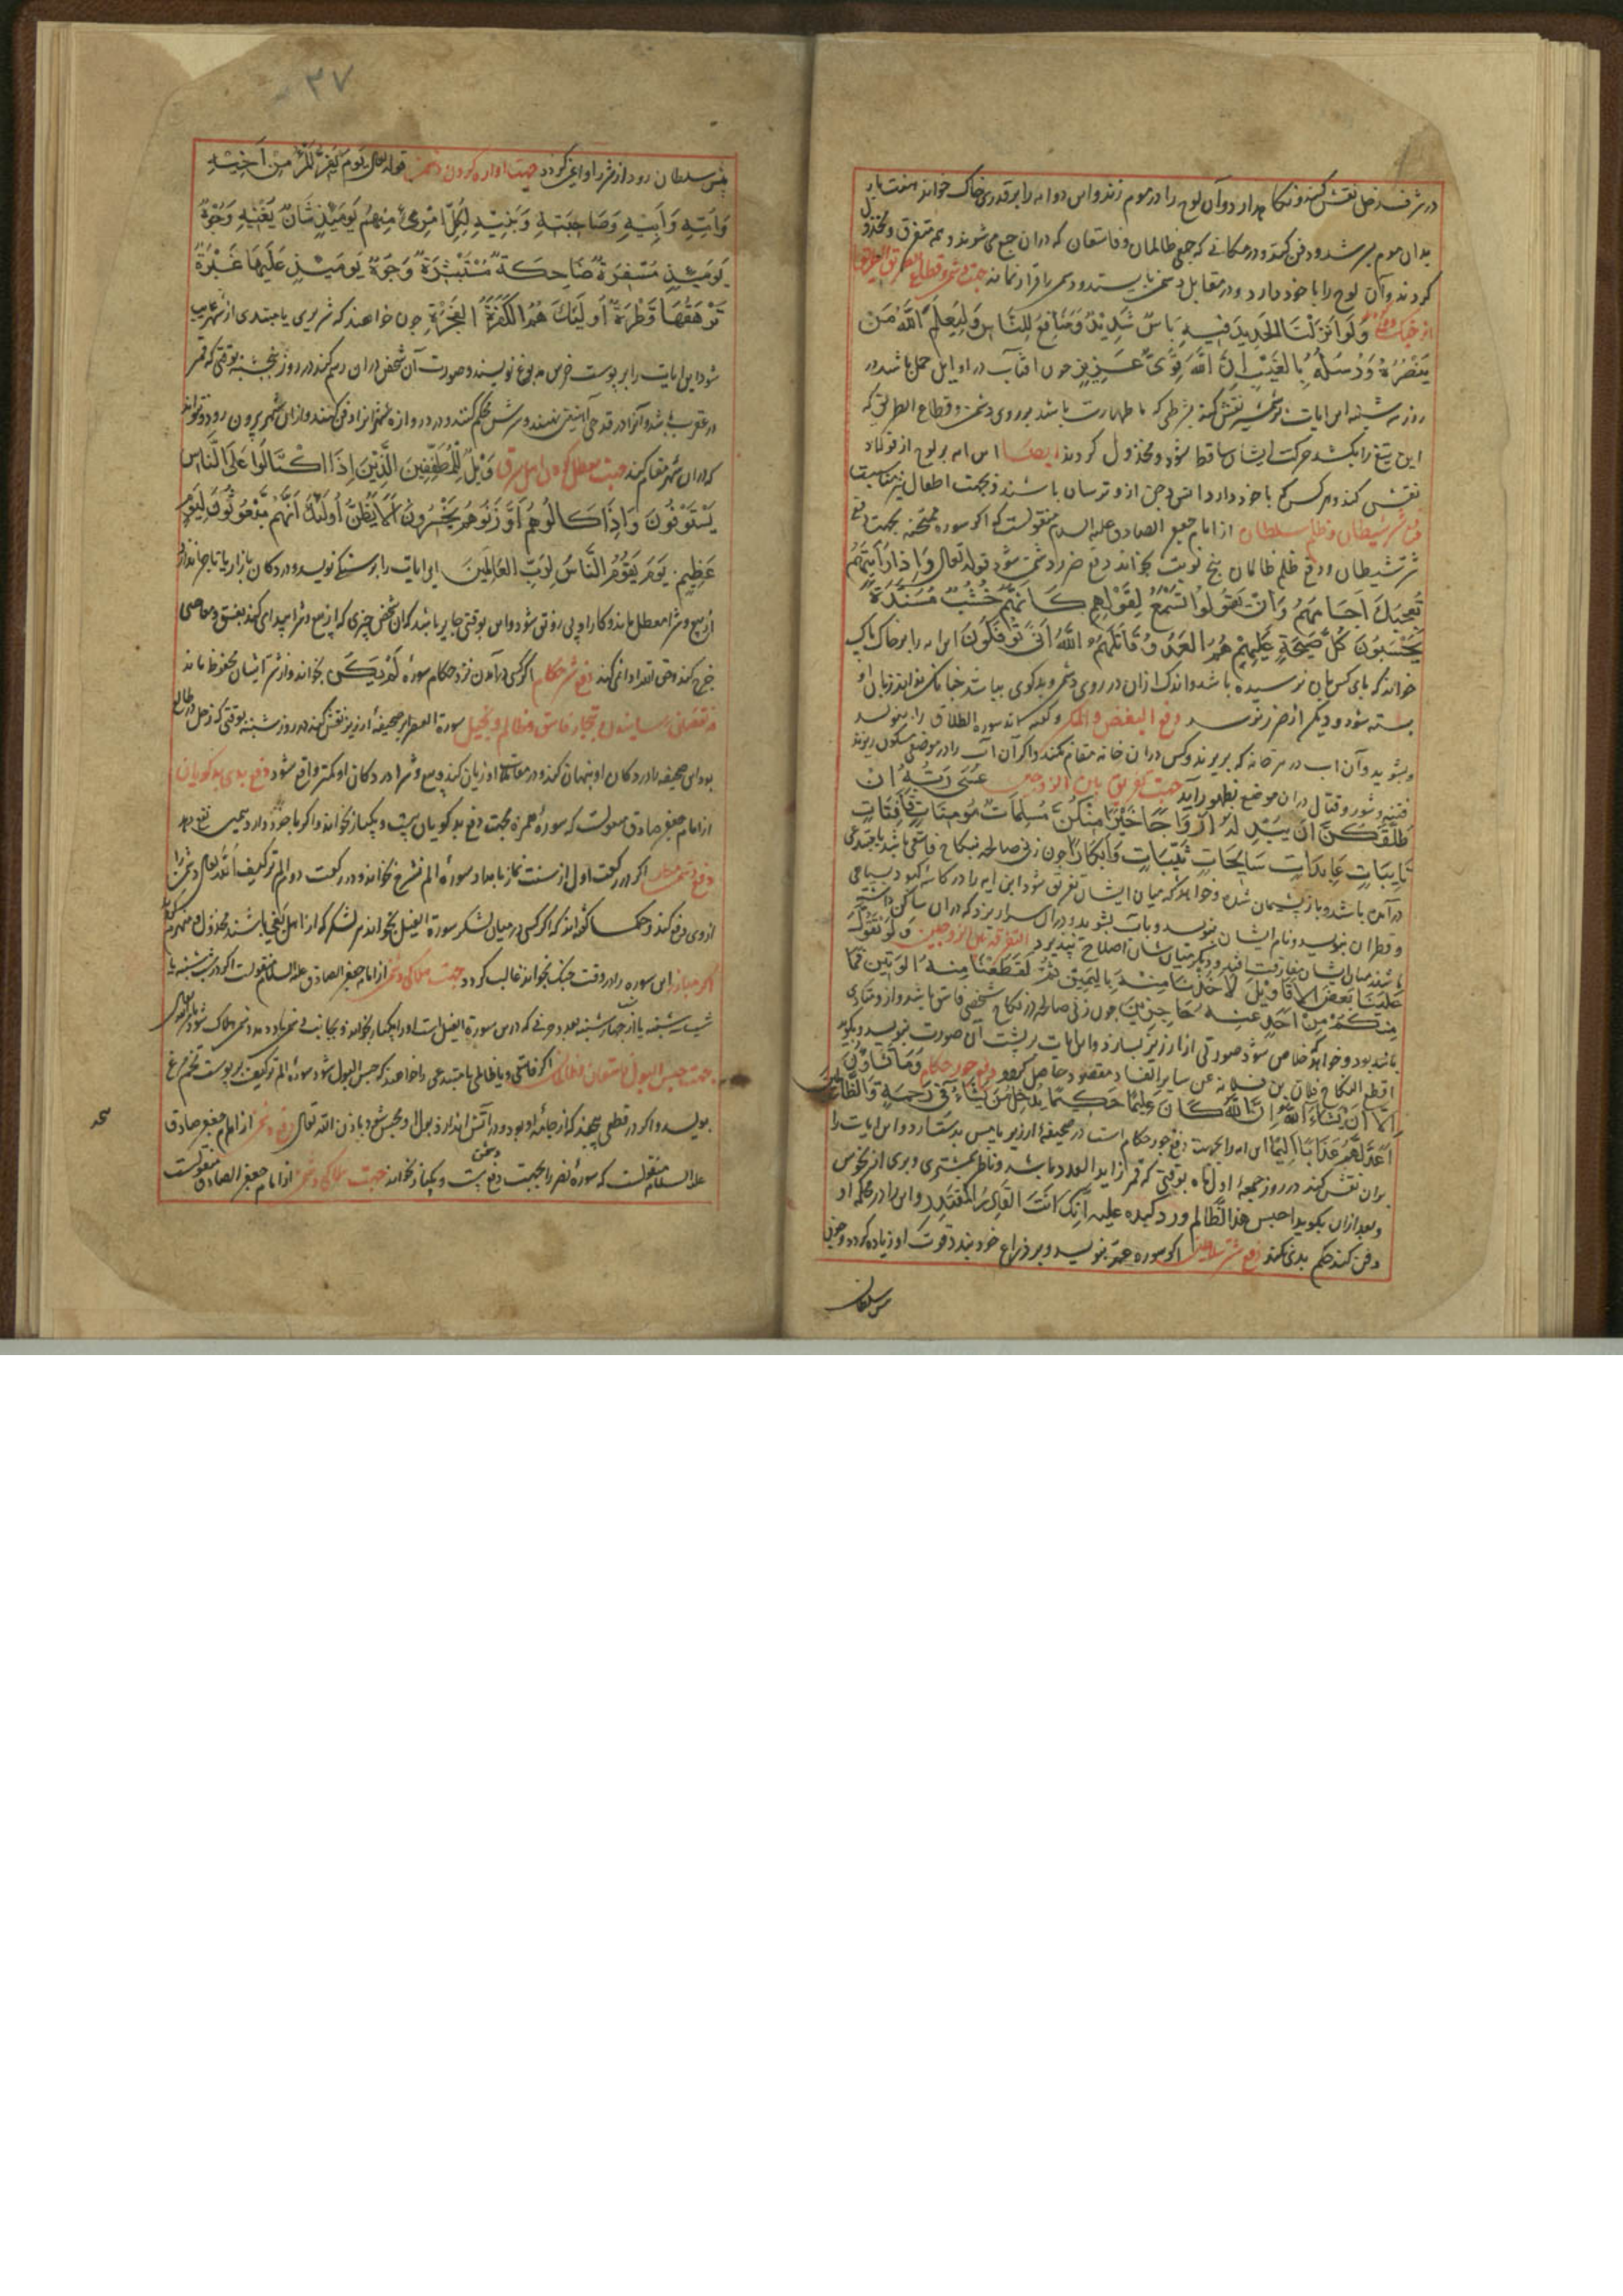 در شرف زحل نقش کند و نگاه دارد و آن لوح را در موم زند و این دو آیه را بر قدری خاک خواند هفت بار
بدان موم سر شد و دفن کند در مکانی که جمعی ظالمان و فاسقان که در آن جمع می شوند و همه متفرق و مخذول
کردند و آن لوح را با خود دارد و در مقابل دشمن بایستد و دشمن را فرار نماید جهت
وَلَوْ اَنْزَلْنَا الْحَدِیدَ فِیهِ بَاسٌ شَدِیْدٌ وَمَنَافِعُ لِلنَّاسِ وَلِیَعْلَمَ اللّٰهُ مَنْ
یَنْصُرُهُ وَرُسُلَهُ بِالْغَیْبِ اِنَّ اللّٰهَ قَوِیٌّ عَزِیزٌ چون آفتاب در اوایل حمل باشد در
روز سه شنبه این ایات بر شمشیر نقش کند بشرطی که با طهارت باشد بر روی دشمن و قطاع الطریق که
این تیغ را بکشد حرکت ایشان ساقط شود و مخذول کردند ایضا این آیه بر لوح از فولاد
نقش کند و هر کس که با خود دارد انس و جن ازو ترسان باشند و بجهت اطفال نیز مناسبت
دفع شر شیطان و ظلم سلطان از امام جعفر الصادق علیه السلام منقولست که اگر سوره ممتحنه بجهت دفع
شر شیطان و دفع ظلم ظالمان پنج نوبت بخواند دفع ضرر دشمن شود قوله تعالی وَاِذَا رَاَیْتَهُمْ
تُعْجِبُكَ اَجْسَامُهُمْ وَاِنْ یَقُولُوا تَسْمَعْ لِقَوْلِهِمْ كَاَنَّهُمْ خُشُبٌ مُسَنَّدَةٌ
یَحْسَبُونَ كُلَّ صَیْحَةٍ عَلَیْهِمْ هُمُ الْعَدُوُّ قَاتَلَهُمُ اللّٰهُ اَنّٰی یُؤْفَكُونَ این آیه را بر خاک پاک
خواند که پای کس بان نرسیده باشد و اندک ازان در روی دشمن و بدکوی بپاشد چنانکه نداند زبان او
بسته شود و دیکر از ضرر نرسد دفع البغض و المکر سوره الطلاق را بنویسد
و بشوید و آن آب در هر خانه که بریزند و کس در آن خانه مقام نکند و اگر آن آب را در موضعی مسکون ریزند
فتنه و شور و قتال در آن موضع بظهور آید جهت تفریق بین الزوجین عَسٰی رَبُّهُ اِنْ
طَلَّقَكُنَّ اَنْ یُبْدِلَهُ اَزْوَاجًا خَیْرًا مِنْكُنَّ مُسْلِمَاتٍ مُؤمِنَاتٍ قَانِتَاتٍ
تَایِبَاتٍ عَابِدَاتٍ سَایِحَاتٍ ثَیِّبَاتٍ وَاَبْكَارًا چون زنی صالحه بنکاح فاسقی باشد یا مبتدعی
در آمده باشد و باز پشیمان شده و خواهد که میان ایشان تفریق شود این آیه را در کاسه کبود بسیاهی
و قطران بنویسد و نام ایشان بنویسد و بآب بشوید و در آن سرا ریزد که در آن ساکن
باشند میان ایشان مفارقت افتد و دیکر میان شان اصلاح نپذیرد التفرقة بین الزوجین وَلَوْ تَقَوَّلَ
عَلَیْنَا بَعْضَ الْاَقَاوِیْلِ لَاَخَذْنَا مِنْهُ بِالْیَمِیْنِ ثُمَّ لَقَطَعْنَا مِنْهُ الْوَتِیْنَ فَمَا
مِنْكُمْ مِنْ اَحَدٍ عَنْهُ حَاجِزِیْنَ چون زنی صالحه در نکاح شخصی فاسق باشد و ازو متاذی
باشد بود و خواهد که خلاص شود صورتی از ارزیز بسازد و این ایات بر پشت آن صورت بنویسد و بکوید
اقطع النکاح فلان بن فلانه عن سایر الفساد مقصود حاصل کردد دفع جور حکام وَمَا تَشَاؤُنَ
اِلَّا اَنْ یَشَاءَ اللّٰهُ اِنَّ اللّٰهَ كَانَ عَلِیْمًا حَكِیْمًا یُدْخِلُ مَنْ یَشَاءُ فِیْ رَحْمَتِهِ وَالظَّالِمِیْنَ
اَعَدَّ لَهُمْ عَذَابًا اَلِیْمًا این آیه را بجهت دفع جور حکام است در صحیفه ارزیز یا مس بدست آرد و این ایات را
بر آن نقش کند در روز جمعه اول ماه بوقتی که قمر زاید العدد باشد و ناظر بمشتری و بری از نحوس
و بعد ازان بکوید احبس هذا الظالم ورد کیده علیه انک انت القادر المقتدر و این را در محله او
دفن کند حکم بدی نکند دفع شر سلاطین اگر سوره عم بنویسد و بر ذراع خود بندد قوت او زیاده کردد و چون
پیش سلطان
۳۷
پیش سلطان رود از شر او ایمن کردد جهت آواره کردن دشمن قوله تعالی یَوْمَ یَفِرُّ الْمَرْءُ مِنْ اَخِیْهِ
وَاُمِّهِ وَاَبِیْهِ وَصَاحِبَتِهِ وَبَنِیْهِ لِكُلِّ امْرِیءٍ مِنْهُمْ یَوْمَئِذٍ شَانٌ یُغْنِیْهِ وُجُوهٌ
یَوْمَئِذٍ مُسْفِرَةٌ ضَاحِكَةٌ مُسْتَبْشِرَةٌ وَوُجُوهٌ یَوْمَئِذٍ عَلَیْهَا غَبَرَةٌ
تَرْهَقُهَا قَتَرَةٌ اُولٰئِكَ هُمُ الْكَفَرَةُ الْفَجَرَةُ چون خواهند که شریری یا مبتدی از شهر غریب
شود این ایات را بر پوست خرس مدبوغ نویسند و صورت آن شخص در آن رسم کند در روز پنجشنبه بوقتی که قمر
در عقرب باشد و آنرا در قدحی آبکینه نهند و سرش محکم کنند و در دروازه شهر آنرا دفن کنند از آن شهر بیرون رود و نتواند
که در آن شهر مقام کند جهت معطل کردن اهل سرق وَیْلٌ لِلْمُطَفِّفِیْنَ الَّذِیْنَ اِذَا اكْتَالُوْا عَلَی النَّاسِ
یَسْتَوْفُونَ وَاِذَا كَالُوهُمْ اَوْ وَزَنُوهُمْ یُخْسِرُونَ اَلَا یَظُنُّ اُولٰئِكَ اَنَّهُمْ مَبْعُوثُونَ لِیَوْمٍ
عَظِیْمٍ یَوْمَ یَقُوْمُ النَّاسُ لِرَبِّ الْعَالَمِیْنَ این ایات را بر سنکی نویسد و در دکان بازاری یا تاجر اندازد
از بیع و شرا معطل ماند و کار او بی رونق شود و این بوقتی جایز باشد که آن شخص چیزی که از بیع و شرا پیدا می کند بفسق و معاصی
خرج کند و حق الله ادا نمی کند دفع شر حکام اگر کسی در آمدن نزد حکام سوره لَمْ یَكُنْ بخواند از شر ایشان محفوظ ماند
نقصان رسانیدن تجار فاسق و ظالم و بخیل سورة العصر بر صحیفه ارزیز نقش کند در روز شنبه بوقتی که زحل در طالع
بود این صحیفه را در دکان او پنهان کند در معاملات او زیان کند و بیع و شرا در دکان او کمتر واقع شود دفع بدی بدکویان
از امام جعفر صادق منقولست که سوره همزه بجهت دفع بدکویان بیست و یکبار بخواند و اگر با خود دارد همین نفع دهد
دفع دشمنان اگر در رکعت اول از سنت نماز بامداد سوره الم نشرح بخواند و در رکعت دوم الم ترکیف الله تعالی دشمن را
از وی دفع کند و حکما گفته اند که اگر کسی در میان لشکر سورة الفیل بخواند بر لشکر که از اهل بغی باشند مخذول و منهزم کردند
اگر مبارز این سوره را در وقت جنک بخواند غالب کردد جهت هلاکی دشمن از امام جعفر الصادق علیه السلام منقولست اگر در شب شنبه یا
شب سه شنبه یا از چهارشنبه بعدد حروفی که درین سورة الفیل است او را یکبار بخواند و بجانب دشمن باد دمد دشمن هلاک شود بامر الله
جهت حبس البول فاسقان و ظالمان اگر فاسقی و یا ظالمی یا مبتدعی را خواهند که حبس البول شود سوره الم ترکیف بر پوست تخم مرغ
بنویسد و اگر در قطعه پیچند که از جامه او بود و در آتش اندازد بول او محبس شود باذن الله تعالی دفع دشمن از امام جعفر صادق
علیه السلام منقولست که سوره نصر را بجهت دفع دشمن بیست و یکبار بخواند جهت هلاکی دشمن از امام جعفر الصادق منقولست